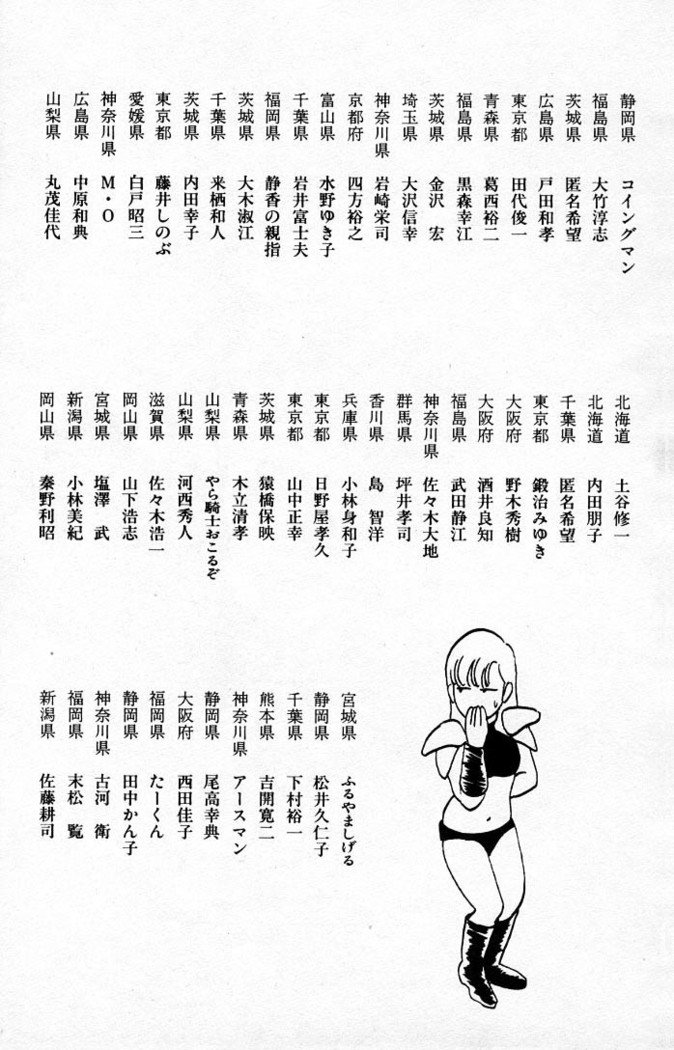 静岡県 コイングマン
福島県 大竹淳志
茨城県 匿名希望
広島県 戸田和孝
東京都 田代俊一
青森県 葛西裕二
福島県 黒森幸江
茨城県 金沢 宏
埼玉県 大沢信幸
神奈川県 岩崎栄司
京都府 四方裕之
富山県 水野ゆき子
千葉県 岩井富士夫
福岡県 静香の親指
茨城県 大木淑江
千葉県 来栖和人
茨城県 内田幸子
東京都 藤井しのぶ
愛媛県 白戸昭三
神奈川県 M・O
広島県 中原和典
山梨県 丸茂佳代
北海道 土谷修一
北海道 内田朋子
千葉県 匿名希望
東京都 鍛治みゆき
大阪府 野木秀樹
大阪府 酒井良知
福島県 武田静江
神奈川県 佐々木大地
群馬県 坪井孝司
香川県 島 智洋
兵庫県 小林身和子
東京都 日野屋孝久
東京都 山中正幸
茨城県 猿橋保映
青森県 木立清孝
山梨県 やら騎士おこるぞ
山梨県 河西秀人
滋賀県 佐々木浩一
岡山県 山下浩志
宮城県 塩澤 武
新潟県 小林美紀
岡山県 秦野利昭
宮城県 ふるやましげる
静岡県 松井久仁子
千葉県 下村裕一
熊本県 吉開寛二
神奈川県 アースマン
静岡県 尾高幸典
大阪府 西田佳子
福岡県 たーくん
静岡県 田中かん子
神奈川県 古河 衛
福岡県 末松 覧
新潟県 佐藤耕司